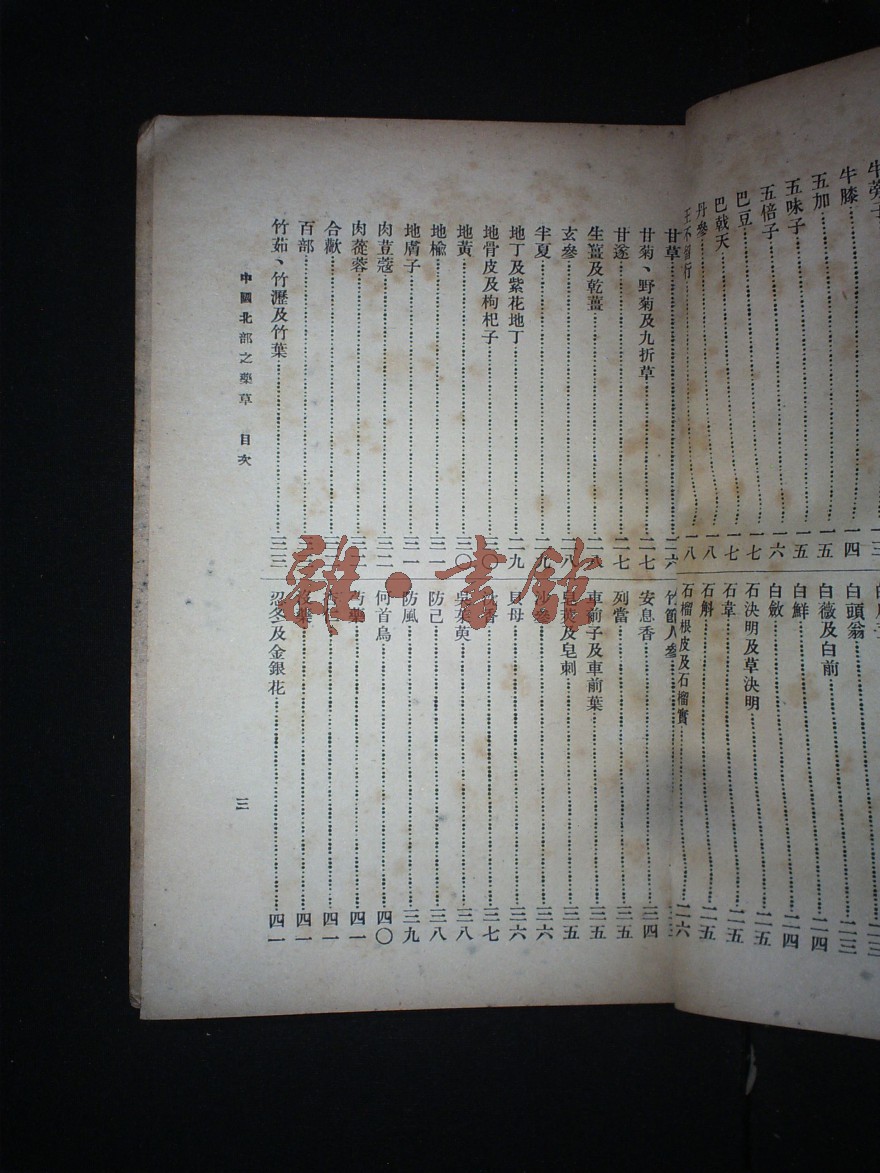 牛蒡子
牛膝……一四
五加……一五
五味子……一五
五倍子……一六
巴豆……一七
巴戟天……一七
丹參……一八
王不留行……一八
白頭翁……二三
白薇及白前……二三
白鮮……二四
白斂……二四
石決明及草決明……二五
石韋……二五
石斛……二五
石榴根皮及石榴實……二六
甘草……二六
甘菊、野菊及九折草……二七
甘遂……二七
生薑及乾薑……二八
玄參……二八
半夏……二九
地丁及紫花地丁……二九
地骨皮及枸杞子……三〇
地黃……三〇
地楡……三一
地膚子……三一
肉荳蔻……三二
肉蓯蓉……三二
合歡
百部
竹茹、竹瀝及竹葉……三三
竹節人參
安息香……三四
列當……三五
車前子及車前葉……三五
皂莢及皂刺……三五
沙參……三六
貝母……三六
香……三七
吳茱萸……三八
防己……三八
防風……三九
何首烏……四〇
芍藥……四一
四一
四一
忍冬及金銀花……四一
中國北部之藥草 目次
三
雜·書館